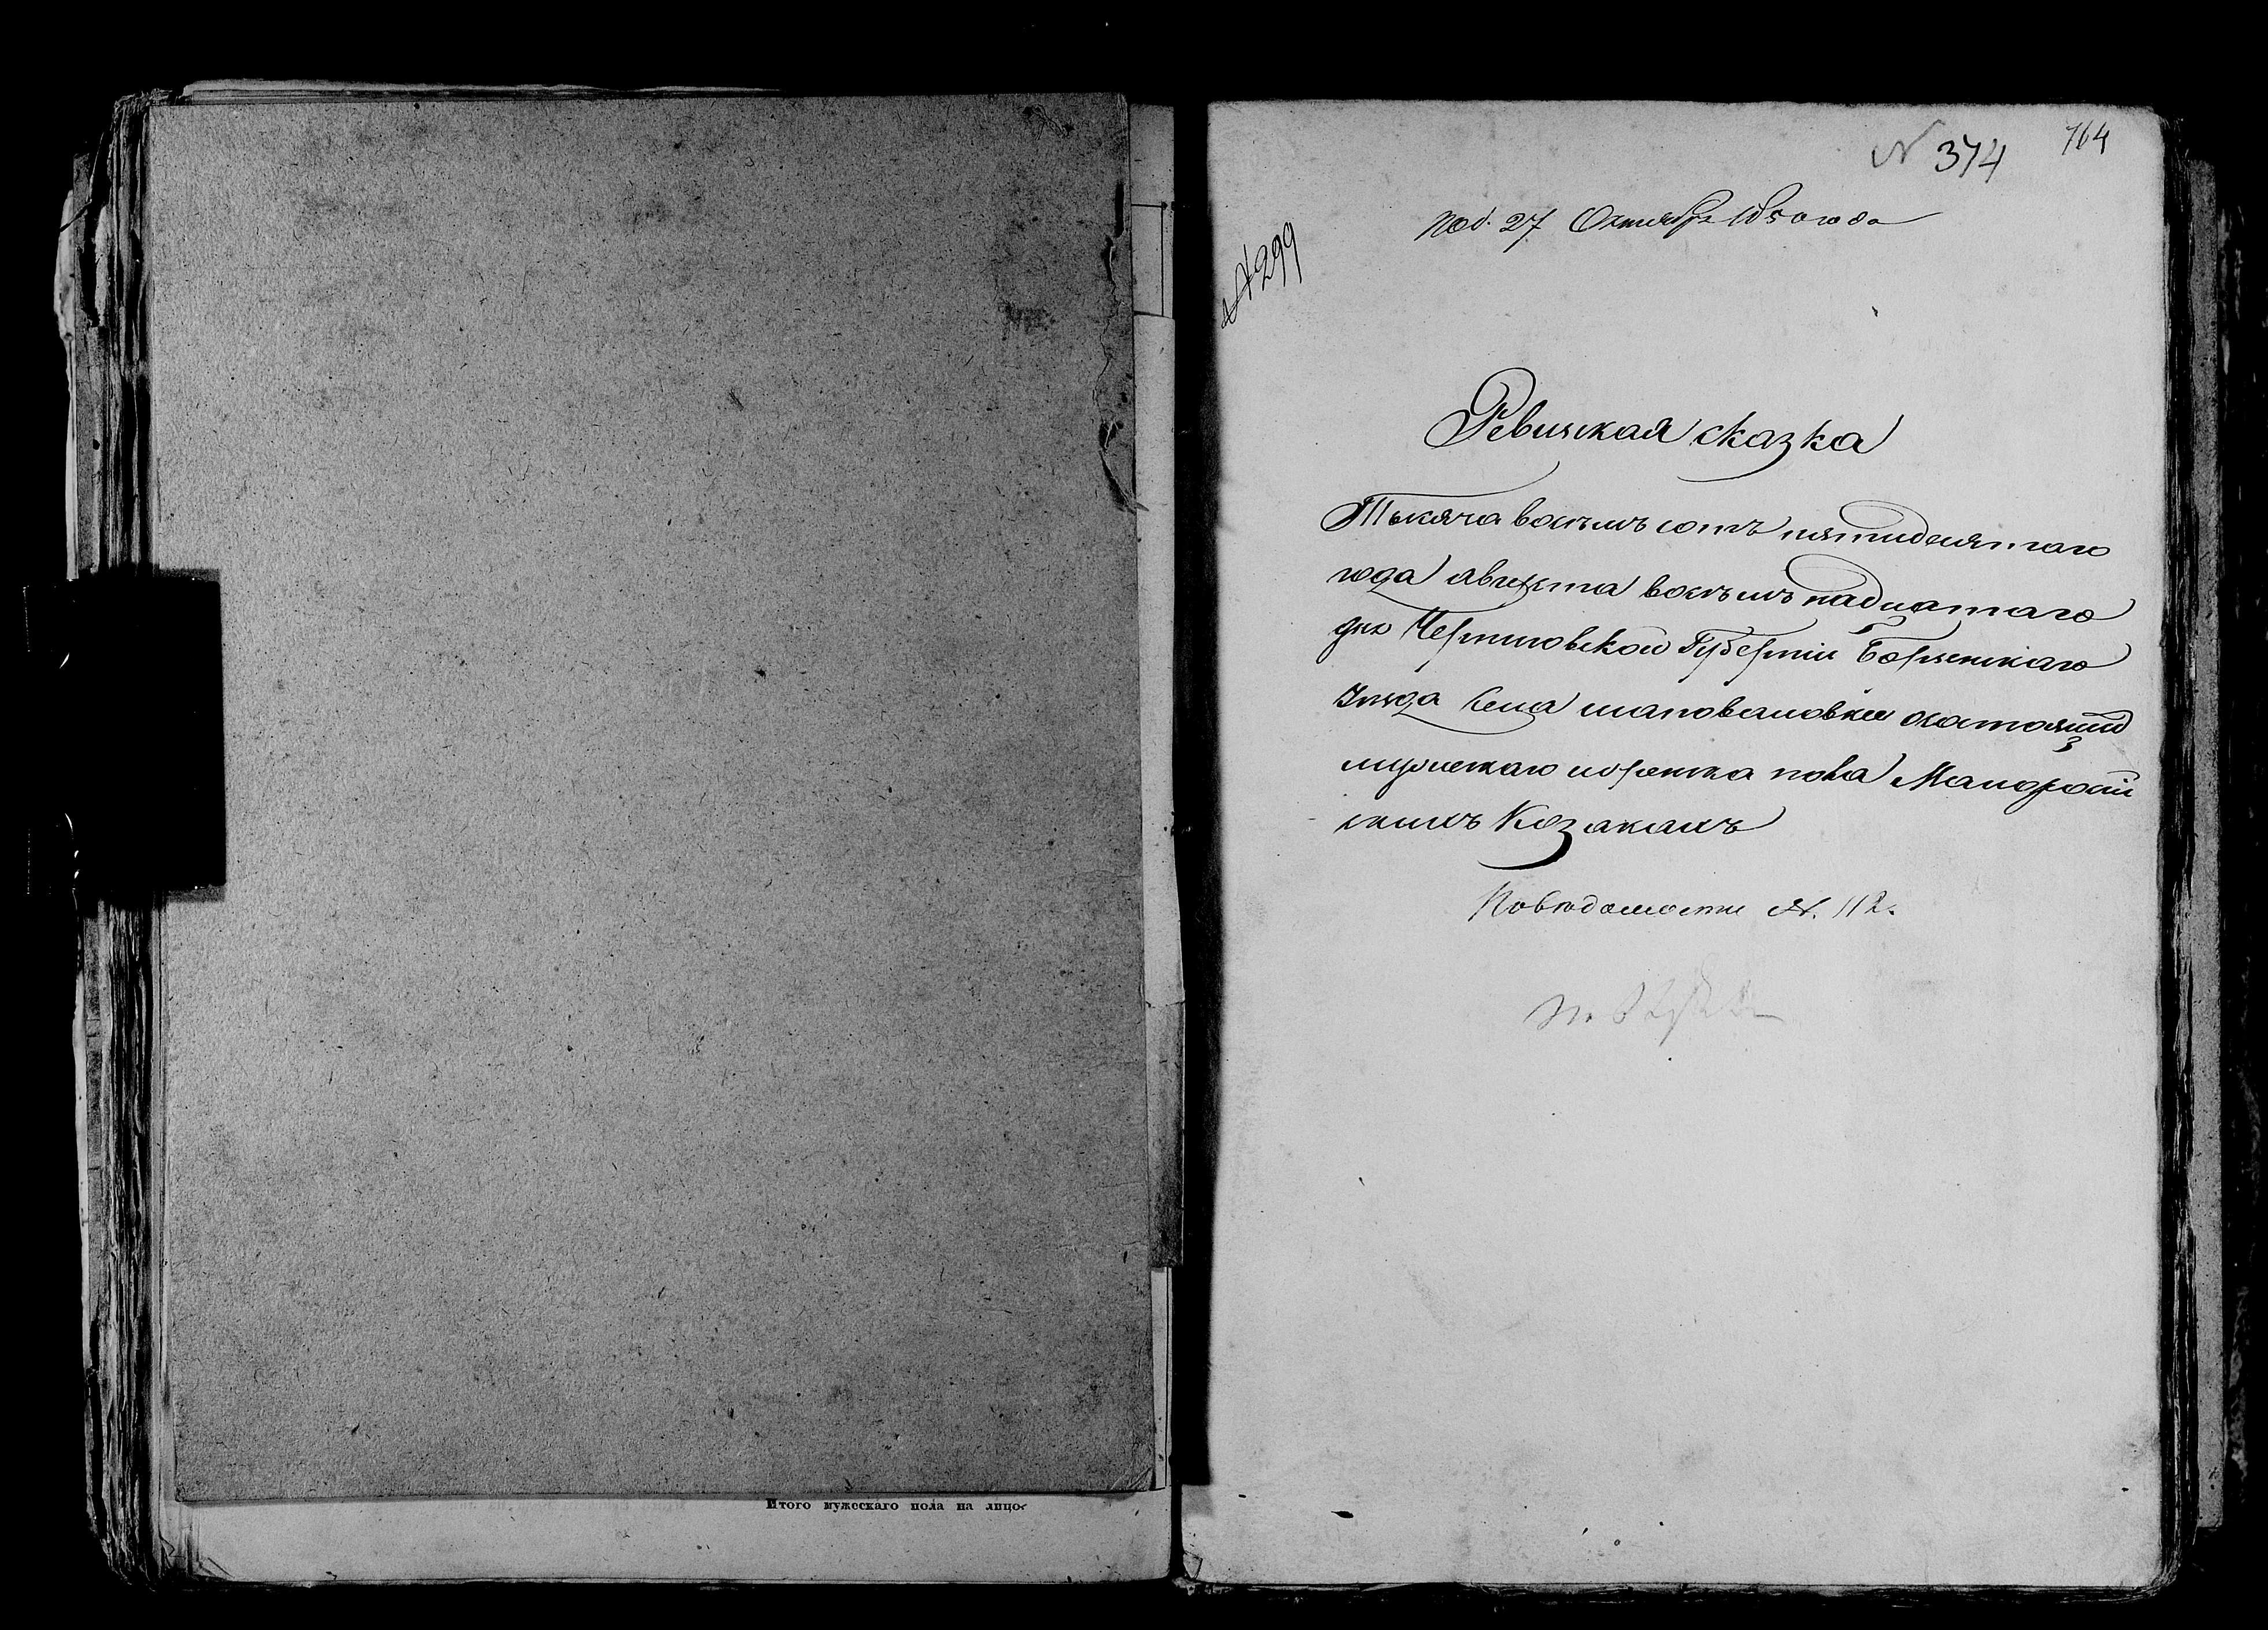 Итого мужескаго пола на лицо
N 374
764
под. 27 Октября 1850 года
№ 299
Ревизская сказка
Тысяча восемъ сотъ пятидесятаго
года августа восемъ надцатаго
дня Черниговской Губерніи Борзенскаго
Уезда Села шаповаловки осостоящихъ
мужескаго иженска пола Малоросій
скихъ Козакахъ
Поведомости №. 112.